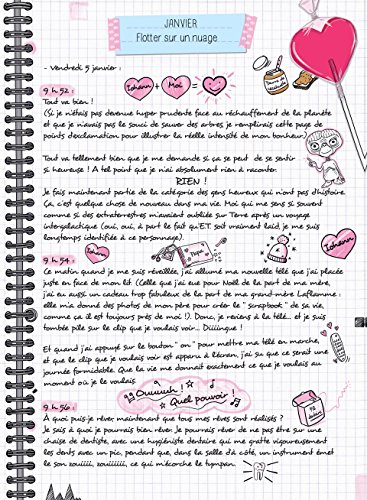 JANVIER
Flotter sur un nuage
- Vendredi 5 janvier :
Iohann + Moi =
9 h 52 :
Tout va bien !
(Si je n'étais pas devenue hyper prudente face au réchauffement de la planète
et que je n'avais pas le souci de sauver des arbres je remplirais cette page de
points d'exclamation pour illustrer la réelle intensité de mon bonheur.)
Tout va tellement bien que je me demande si ça se peut de se sentir
si heureuse ! À tel point que je n'ai absolument rien à raconter.
RIEN !
Je fais maintenant partie de la catégorie des gens heureux qui n'ont pas d'histoire.
Ça, c'est quelque chose de nouveau dans ma vie. Moi qui me sens si souvent
comme si des extraterrestres m'avaient oubliée sur Terre après un voyage
intergalactique (oui, oui, à part le fait qu'E.T. soit vraiment laid, je me suis
longtemps identifiée à ce personnage).
Iohann
Iohann
9 h 54 :
Ce matin quand je me suis réveillée, j'ai allumé ma nouvelle télé que j'ai placée
juste en face de mon lit. (Celle que j'ai eue pour Noël de la part de ma mère,
j'ai eu aussi un cadeau trop fabuleux de la part de ma grand-mère Laflamme :
elle m'a donné des photos de mon père pour créer le " scrapbook " de sa vie,
comme ça il est toujours près de moi !). Donc, je reviens à la télé... et je suis
tombée pile sur le clip que je voulais voir... Diiiingue !
Et quand j'ai appuyé sur le bouton " on " pour mettre ma télé en marche,
et que le clip que je voulais voir est apparu à l'écran, j'ai su que ce serait une
journée formidable. Que la vie me donnait exactement ce que je voulais au
moment où je le voulais.
Ouuuuh !
Quel pouvoir !
9 h 56 :
À quoi puis-je rêver maintenant que tous mes rêves sont réalisés ?
Je sais à quoi je pourrais bien rêver. Je pourrais rêver de ne pas être sur une
chaise de dentiste, avec une hygiéniste dentaire qui me gratte vigoureusement
les dents avec un pic, pendant que, dans la salle d'à côté, un instrument émet
le son zouiiiii, zouiiiiii, ce qui m'écorche le tympan.